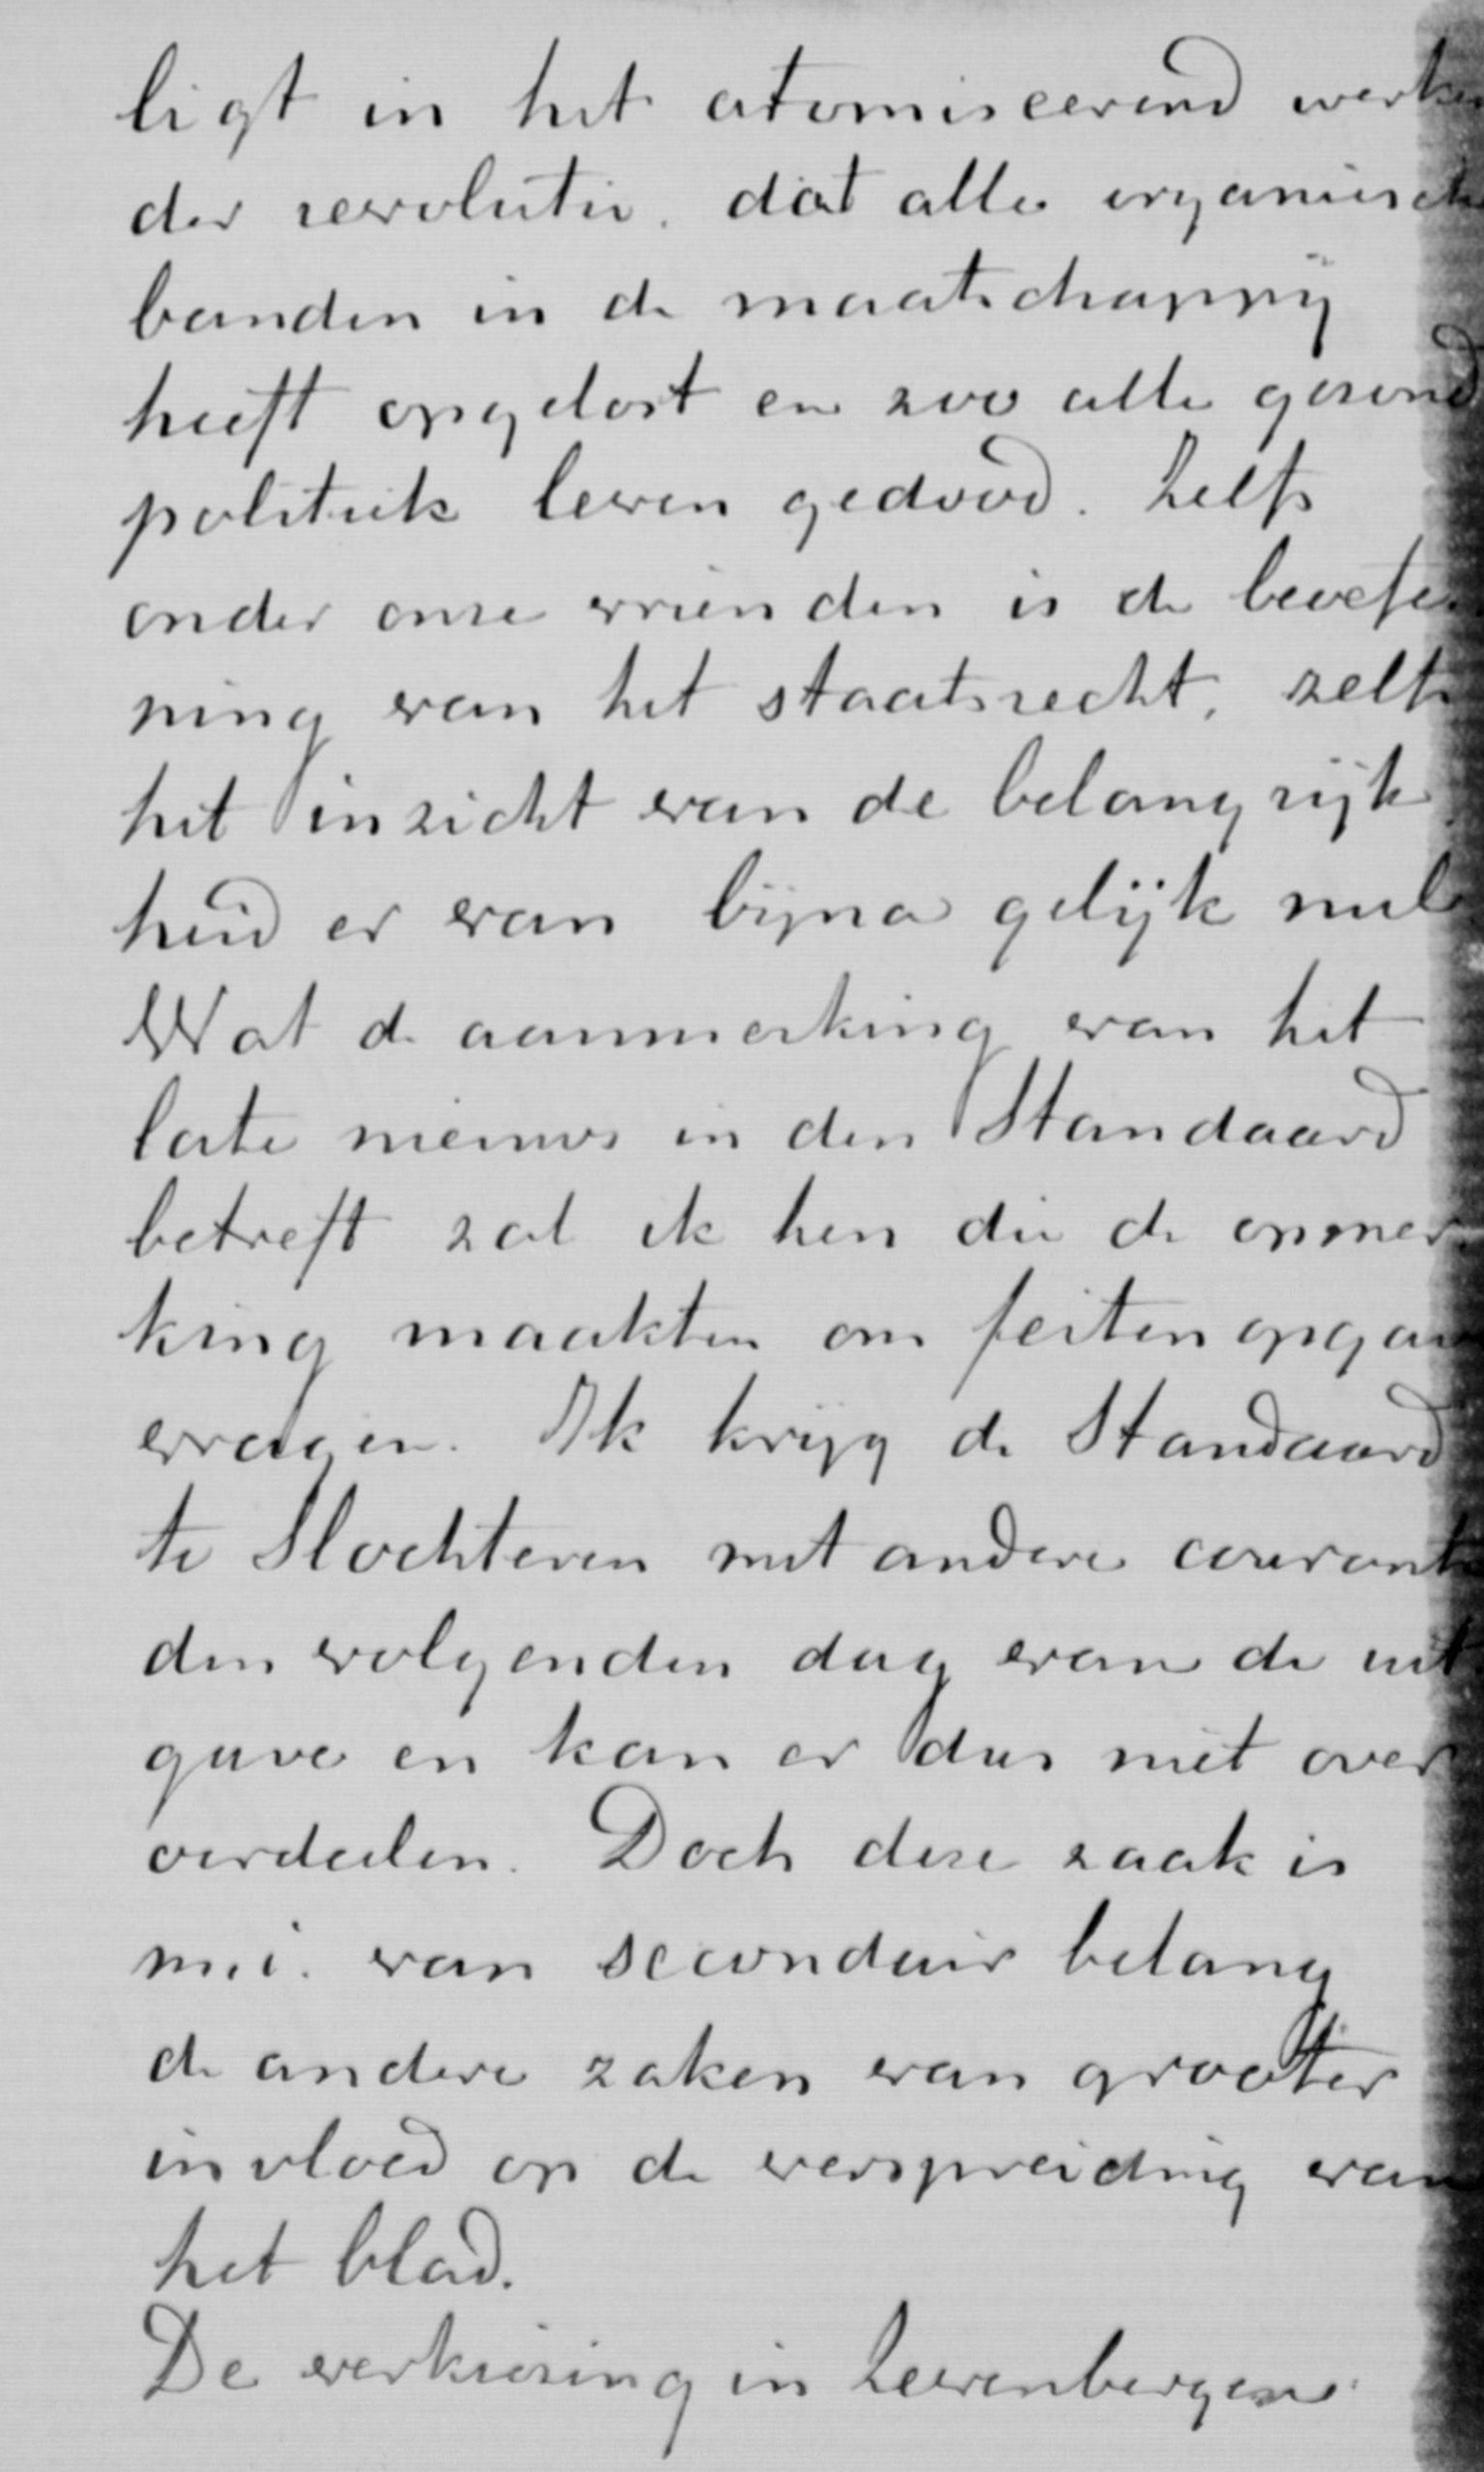 ligt in het atomiseerend werken
der revolutie. dat alle organische
banden in de maatschappij
heeft opgelost en zoo alle gezond
politiek leven gedood. Zelfs
onder onze vrienden is de beoefe
ning van het staatsrecht, zelfs
het inzicht van de belangrijk
heid er van bijna gelijk nul
Wat de aanmerking van het
late nieuws in den Standaard
betreft zal ik hen die de opmer
king maakten om feiten opgave
vragen. Ik krijg de Standaard
te Slochteren met andere couranten
den volgenden dag van de uit
gave en kan er dus niet over
oordeelen. Doch deze zaak is
m.i. van secondair belang
de andere zaken van grooter
invloed op de verspreiding van
het blad.
De verkiezing in Zevenbergen